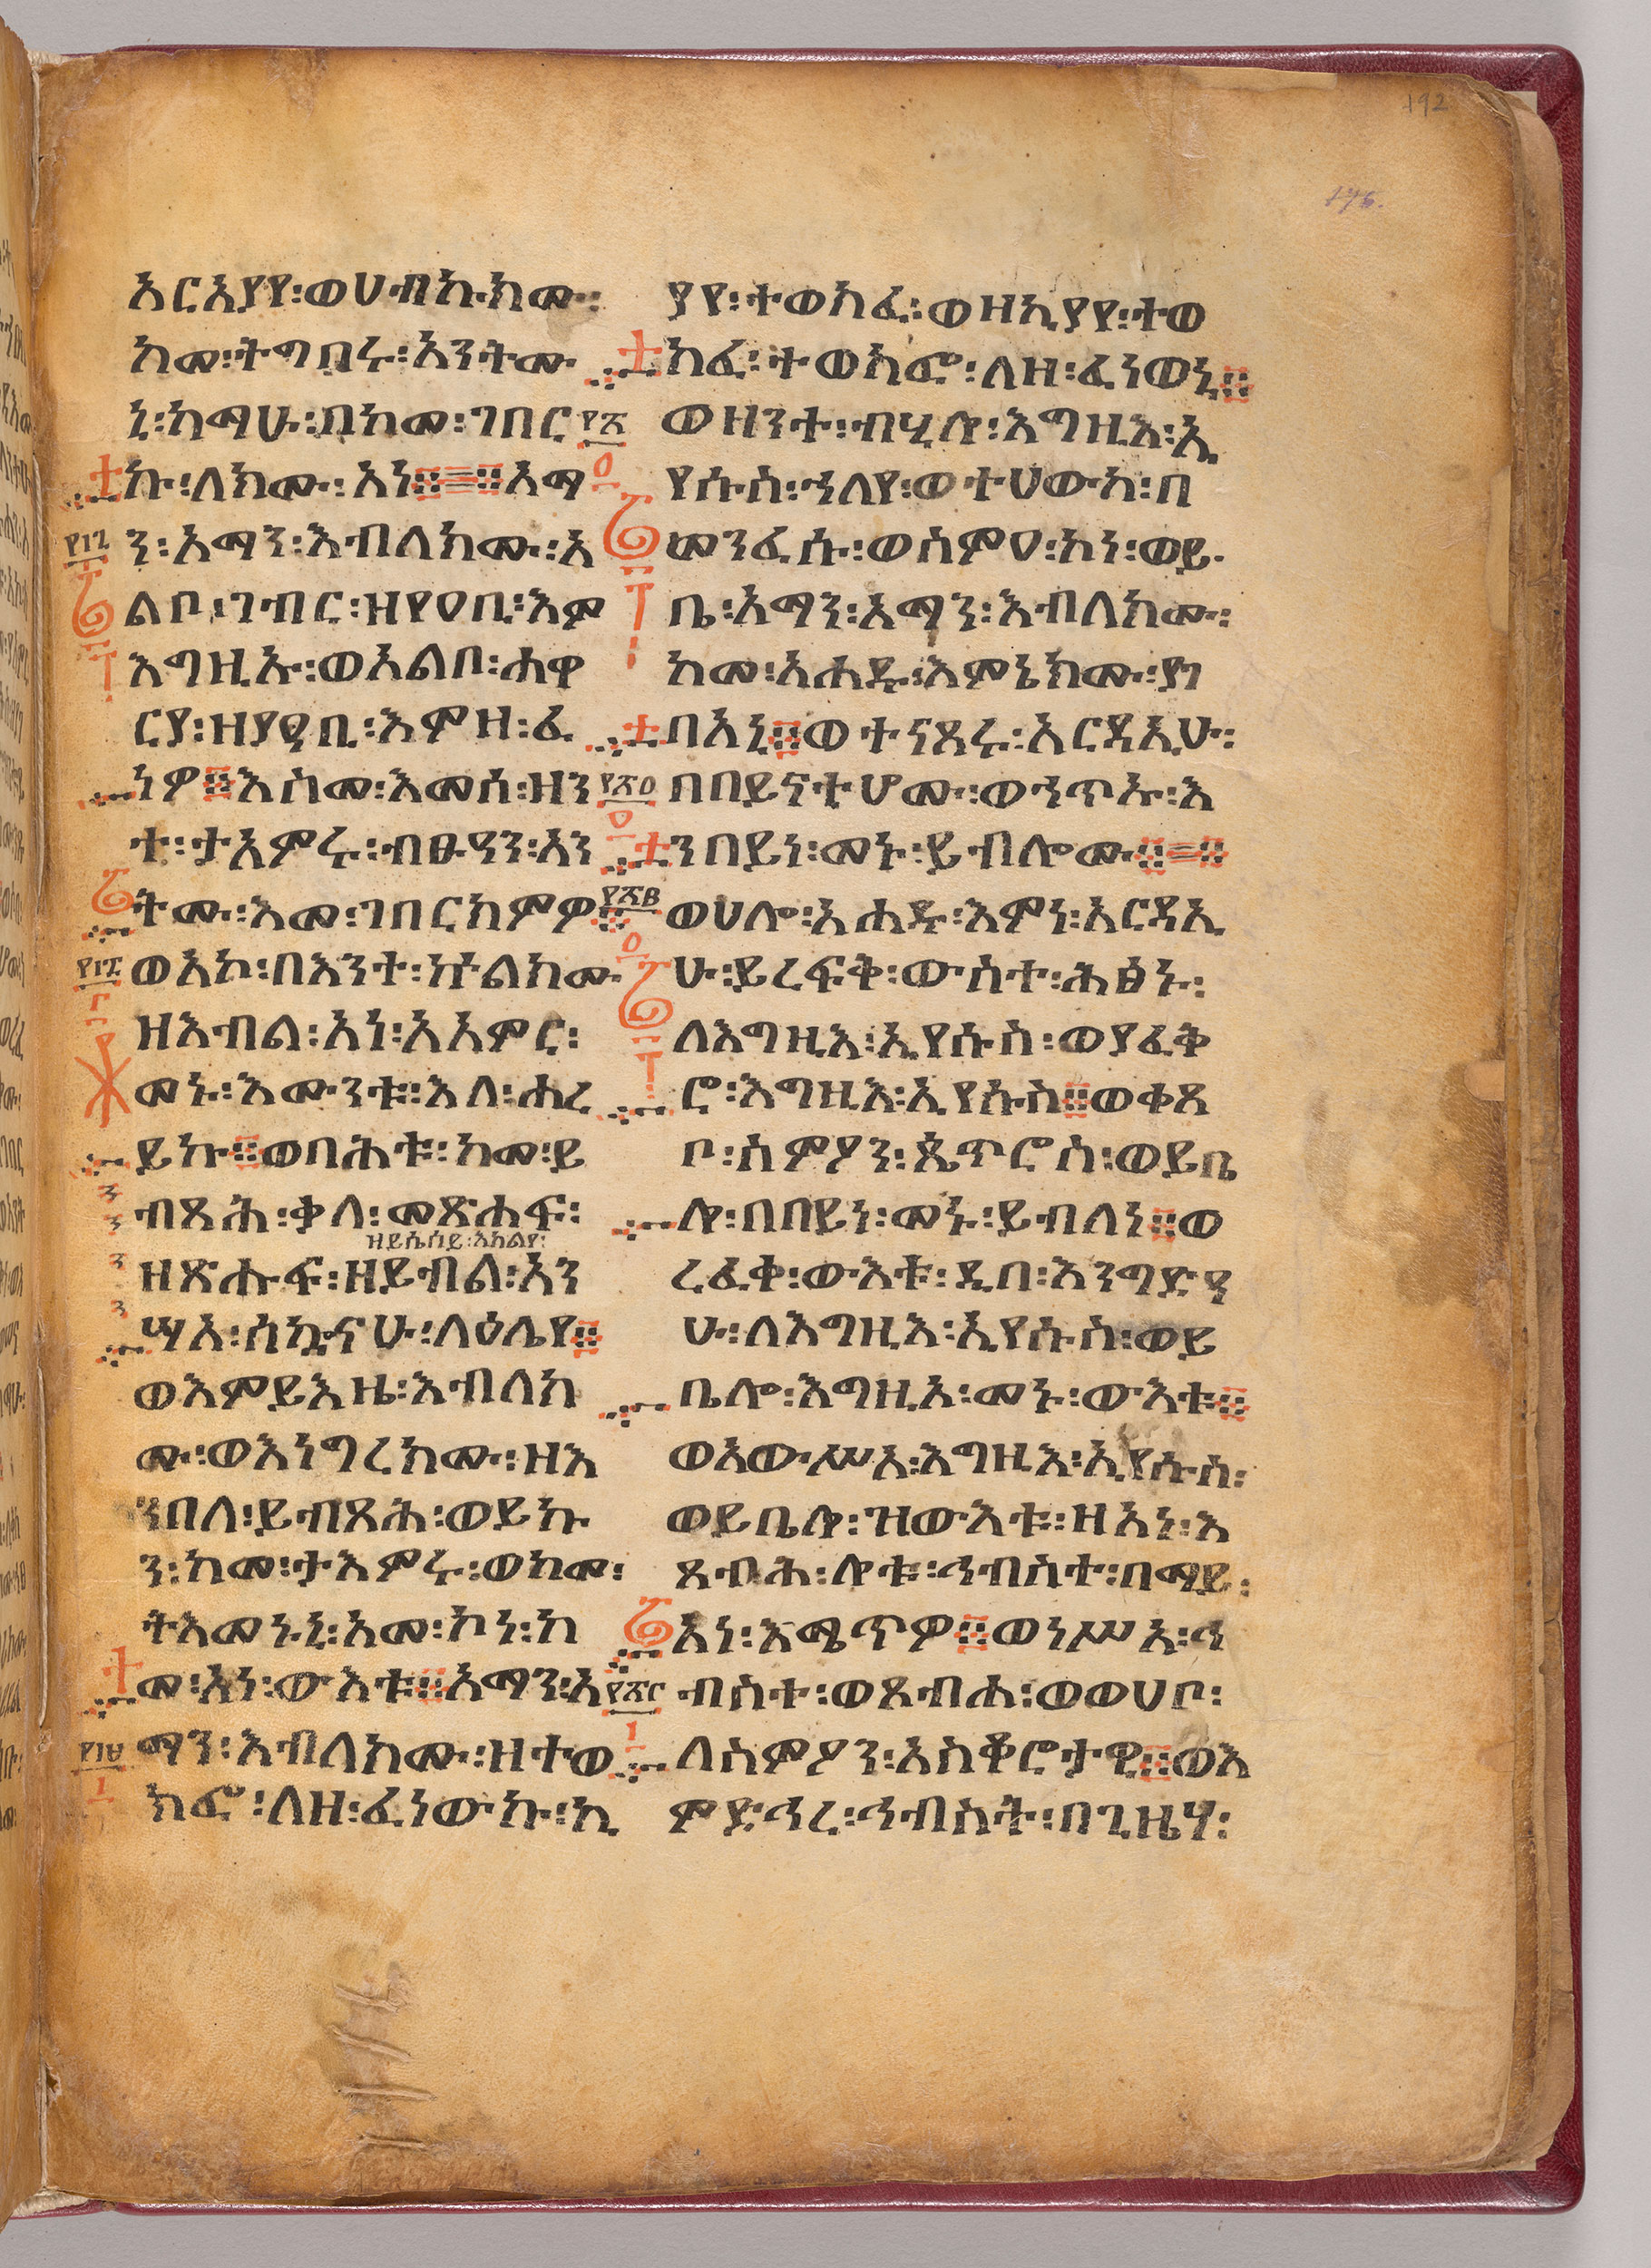 192
176.
አርአያየ፡ወሀብኩክሙ፡
ከመ፡ትግበሩ፡አንትሙ
ኒ፡ከማሁ፡በከመ፡ገበር
ኩ፡ለክሙ፡አነ፨አማ
ን፡አማን፡እብለክሙ፡አ
ልቦ፡ገብር፡ዘየዐቢ፡እም
እግዚኡ፡ወአልቦ፡ሐዋ
ርያ፡ዘያዐቢ፡እምዘ፡ፈ
ነዎ፨እስመ፡እመሰ፡ዘን
ተ፡ታአምሩ፡ብፁዓን፡አን
ትሙ፡እመ፡ገበርክምዎ፨
ወአኮ፡በእንተ፡ኵልክሙ
ዘእብል፡አነ፡አአምር፡
መኑ፡እሙንቱ፡እለ፡ሐረ
ይኩ፨ወባሕቱ፡ከመ፡ይ
ብጻሕ፡ቃለ፡መጽሐፍ፡
ዘይሴሰይ፡እክልየ፡
ዘጽሑፍ፡ዘይብል፡አን
ሣአ፡ሰኳናሁ፡ላዕሌየ፨
ወእምይእዜ፡እብለክ
ሙ፡ወእነግረክሙ፡ዘእ
ንበለ፡ይብጻሕ፡ወይኩ
ን፡ከመ፡ታእምሩ፡ወከመ፡
ትእመኑኒ፡አመ፡ኮነ፡ከ
መ፡አነ፡ውእቱ፨አማን፡አ
ማን፡እብለክሙ፡ዘተወ
ክፎ፡ለዘ፡ፈነውኩ፡ኪ
ያየ፡ተወክፈ፡ወዘኪያየ፡ተወ
ክፈ፡ተወክፎ፡ለዘ፡ፈነወኒ፨
ወዘንተ፡ብሂሎ፡እግዚእ፡ኢ
የሱስ፡ኀለየ፡ወተሀውከ፡በ
መንፈሱ፡ወስምዐ፡ኮነ፡ወይ
ቤ፡አማን፡አማን፡እብለክሙ፡
ከመ፡አሐዱ፡እምኔክሙ፡ያገ
በአኒ፨ወተናጸሩ፡አርዳኢሁ፡
በበይናቲሆሙ፡ወኀጥኡ፡እ
ንበይነ፡መኑ፡ይብሎሙ፨
ወሀሎ፡አሐዱ፡እምነ፡አርዳኢ
ሁ፡ይረፍቅ፡ውስተ፡ሕፅኑ፡
ለእግዚእ፡ኢየሱስ፡ወያፈቅ
ሮ፡እግዚእ፡ኢየሱስ፨ወቀጸ
ቦ፡ስምዖን፡ጴጥሮስ፡ወይቤ
ሎ፡በበይነ፡መኑ፡ይብለነ፨ወ
ረፈቀ፡ውእቱ፡ዲበ፡እንግድዓ
ሁ፡ለእግዚእ፡ኢየሱስ፡ወይ
ቤሎ፡እግዚእ፡መኑ፡ውእቱ፨
ወአውሥአ፡እግዚእ፡ኢየሱስ፡
ወይቤሎ፡ዝውእቱ፡ዘአነ፡እ
ጸብሕ፡ሎቱ፡ኅብስተ፡በማይ፡
አነ፡እሜጥዎ፨ወነሥአ፡ኀ
ብስተ፡ወጸብሐ፡ወወሀቦ፡
ለስምዖን፡አስቆሮታዊ፨ወእ
ምድኅረ፡ኅብስት፡በጊዜሃ፡